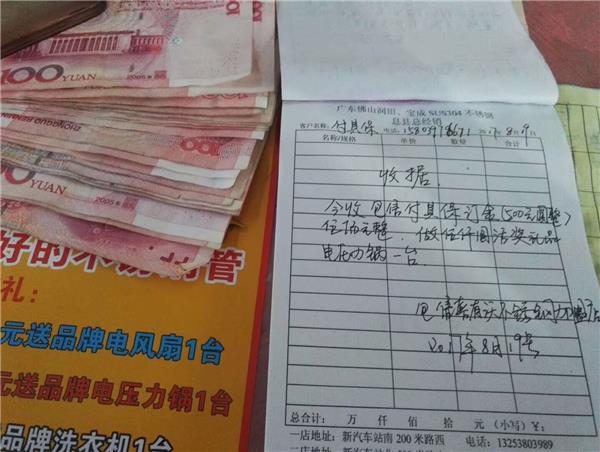 100
YUAN
2005年
100
100
2005年
好的不锈钢管
礼：
元送品牌电风扇1台
元送品牌电压力锅1台
品牌洗衣机1台
广东佛山润田、宝成 SUS304 不锈钢
息县总经销
客户名称：付具保 电话： 8月19日
名称/规格 单价 数量 合计
收据
今收 付具保订金(500元圆整)
伍佰元整．做任何圆活奖礼品
电压力锅一台．
2017年8月19号
总合计： 万 仟 佰 拾 元 (小写)￥：
一店地址：新汽车站南 200 米路西 电话：13253803989